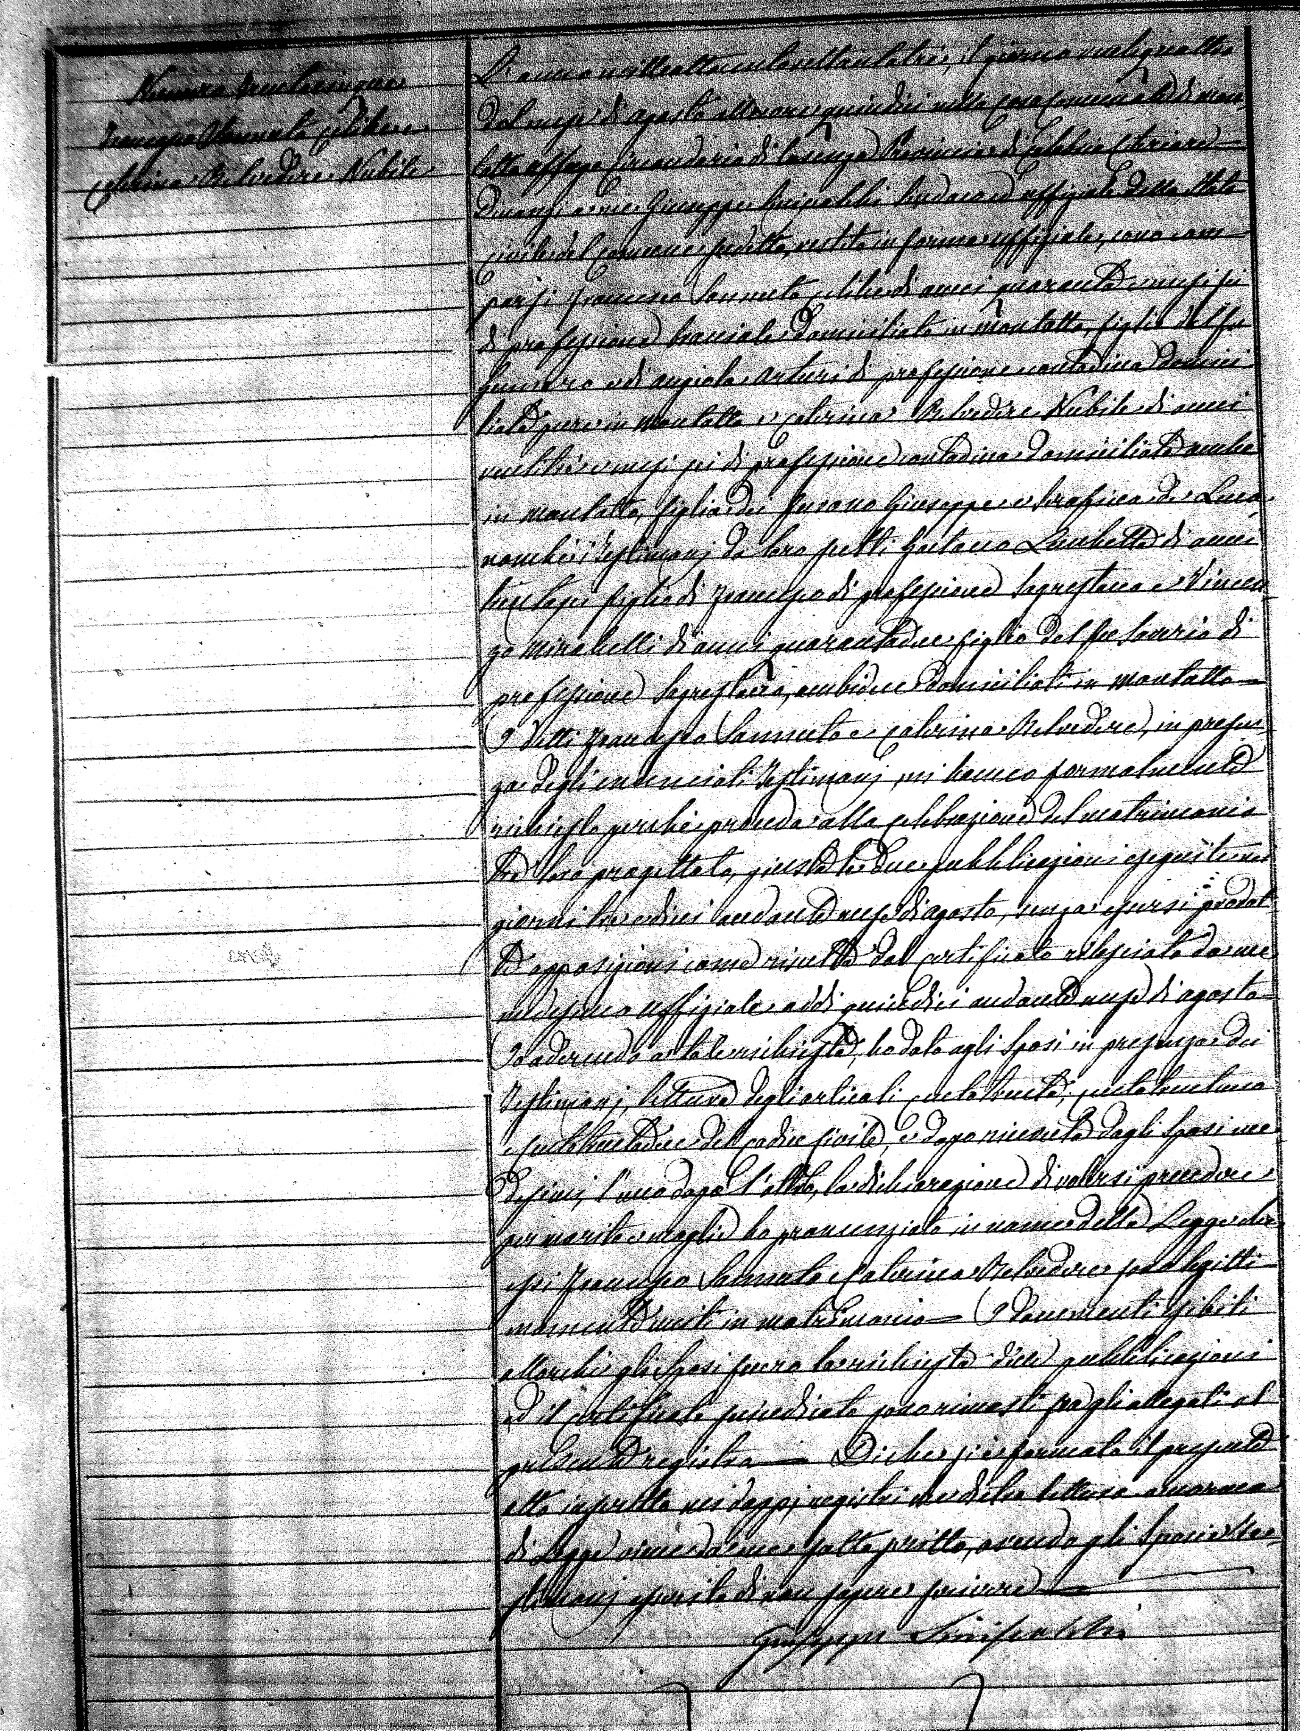 Numero trentacinque
Francesco Sannuto celibe e
Caterina Belvedere Nubile
L'anno milleottocentosettantatre, il giorno ventiquattro
del mese di agosto alle ore quindici nella Casa Comunale di Mon
talto Uffugo Circondario di Cosenza Provincia di Calabria Citeriore
Dinanzi a me Giuseppe Sindaco ed uffiziale dello Stato
civile del comune suddetto, vestito in forma uffiziale, sono com
parsi Francesco Sannuto celibe di anni quaranta e mesi sei
di professione bracciale domiciliato in Montalto, figlio del fu
Gennaro e di Angiola Arturi di professione contadina domici
liata pure in Montalto e Caterina Belvedere Nubile di anni
ventitre e mesi sei di professione contadina domiciliata anche
in Montalto, figlia dei furono Giuseppe e Serafina de Luca
nonché i Testimonj da loro scelti Gaetano di anni
figlio di Francesco di professione Sagrestano e Vincen
zo Mirabelli di anni quarantadue figlio del fu Saverio di
professione Sagrestano, ambidue domiciliati in Montalto
I detti Francesco Sannuto e Caterina Belvedere, in presen
za degli enunciati Testimonj, mi hanno formalmente
richiesto perché proceda alla celebrazione del matrimonio
tra loro progettato, giusta le due pubblicazioni eseguite nei
giorni tre e dieci andante mese di agosto, senza esservi prodot
te opposizioni come risulta dal certificato rilasciato da me
medesimo uffiziale addì quindici andante mese di agosto
Io aderendo a tale richiesta, ho dato agli Sposi in presenza dei
Testimonj, lettura degli articoli centotrenta, centotrentuno
e centotrentadue del codice Civile, e dopo ricevuta dagli Sposi me
desimi, l'uno dopo l'altro, la dichiarazione di volersi prendere
per marito e moglie ho pronunziato in nome della Legge che
essi Francesco Sannuto e Caterina Belvedere sono legitti
mamente uniti in matrimonio — I documenti esibiti
allorché gli Sposi fecero la richiesta delle pubblicazioni
ed il certificato precedente sono rimasti fra gli allegati al
presente registro — Di che si è formato il presente
atto inscritto nei doppj registri che dietro lettura a norma
di Legge viene da me sottoscritto, avendo gli Sposi e Te
stimonj asserito di non sapere scrivere
Giuseppe